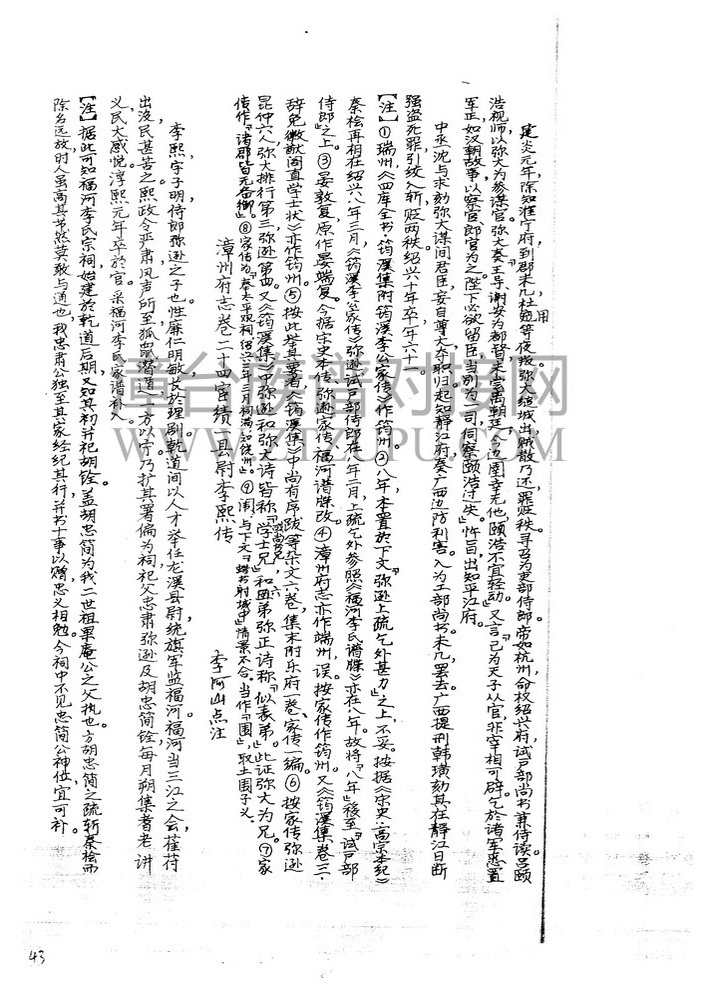 建炎元年，除知淮宁府，到郡未几，杜用等夜叛，弥大缒城出，贼散乃还，罪贬秩。寻召为吏部侍郎。帝如杭州，命权绍兴府，试户部尚书兼侍读。吕颐
浩视师，以弥大为参谋官。弥大奏：「王导、谢安为都督，未尝离朝廷，今边圉幸无他，颐浩不宜轻动。」又言：「己为天子从官，非宰相可辟，乞於诸军悉置
军正，如汉朝故事，以察官、郎官为之。陛下必欲留臣，当别为一司，伺察颐浩过失。」忤旨，出知平江府。
中丞沈与求劾弥大谋间君臣，妄自尊大，夺职归。起知静江府，奏广西边防利害。入为工部尚书，未几，罢去。广西提刑韩璜劾其在静江日断
强盗死罪，引绞入斩，贬两秩。绍兴十年卒，年六十一。
【注】①瑞州，《四库全书·筠溪集附筠溪李公家传》作筠州。②八年，本置於下文『弥逊上疏乞外甚力』之上，不妥。按据《宋史·高宗本纪》
秦桧再相在绍兴八年三月，《筠溪李公家传》弥逊试户部侍郎在八年二月，上疏乞外参照《福河李氏谱牒》亦在八年。故将『八年』移至『试户部
侍郎』之上。③晏敦复，原作晏端复。今据宋史本传、弥逊家传、福河谱牒改。④漳州府志亦作端州，误。按家传作筠州。又《筠溪集卷三·
辞免徽猷阁直学士状》亦作筠州。⑤按此举其要者，《筠溪集》中尚有序跋等杂文六卷，集末附乐府一卷、家传一编。⑥按家传，弥逊
昆仲六人，弥大排行第三，弥逊第四。又《筠溪集》中弥逊和弥大诗皆称『学士兄』『尚书兄』，和六弟弥正诗称『似表弟』。此证弥大为兄。⑦家
传作『诸郡皆无备御』。⑧家传为『奉太平观祠，绍兴三年三月祠满，知饶州』。⑨闱，与下文『蜡书射城中』情景不合。当作『围』，取土围子义。
李阿山点注
漳州府志卷二十四宦绩一县尉李熙传
李熙，字子明，侍郎弥逊之子也。性廉仁明敏，长於理剧。乾道间以人才举任龙溪县尉，统旗军监福河。福河当三江之会，萑苻
出没，民甚苦之。熙政令严肃，风声所至，狐鼠潜遁，一方以宁。乃扩其署偏为祠，祀父忠肃弥逊及胡忠简铨，每月朔集耆老讲
义，民大感悦。淳熙元年卒於官。采福河李氏家谱补入。
【注】据此可知福河李氏宗祠始建於乾道后期，又知其初并祀胡铨。盖胡忠简为我二世祖果庵公之父执也。方胡忠简之疏斩秦桧而
除名远放，时人虽高其节，然莫敢与通也，我忠肃公独至其家，经纪其行，并书十事以赠，忠义相勉。今祠中不见忠简公神位，宜可补。
43
壇台族谱对接网
WWW.ZTZUPU.COM